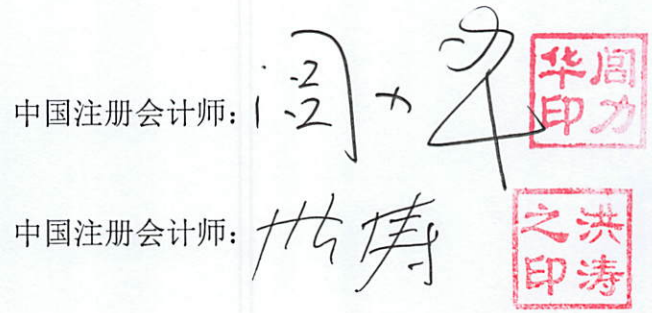 中国注册会计师：闾力华
闾力华印
中国注册会计师：洪涛
洪涛之印